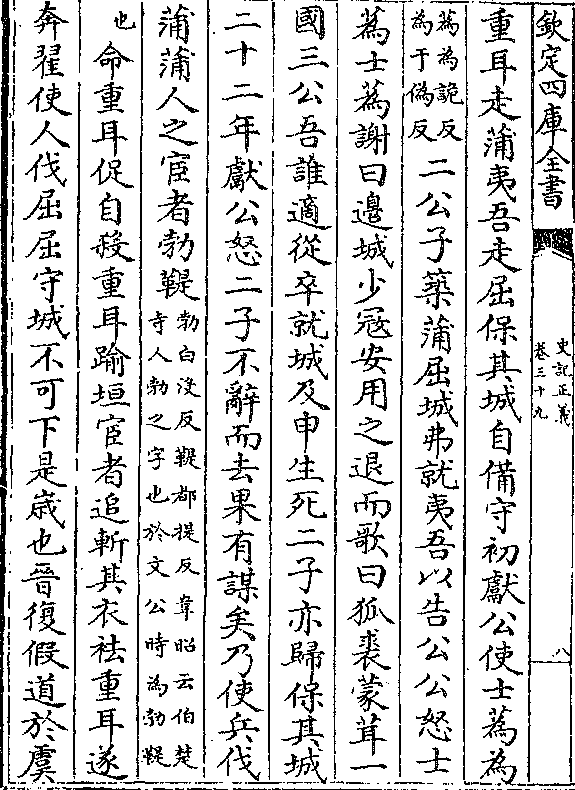 欽定四庫全書
史記正義
卷三十九
八
重耳走蒲夷吾走屈保其城自備守初獻公使士蒍為
蒍為詭反
為于偽反
二公子築蒲屈城弗就夷吾以告公公怒士
蒍士蒍謝曰邊城少冦安用之退而歌曰狐裘蒙茸一
國三公吾誰適從卒就城及申生死二子亦歸保其城
二十二年獻公怒二子不辭而去果有謀矣乃使兵伐
蒲蒲人之宦者勃鞮
勃白沒反鞮都提反韋昭云伯楚
寺人勃之字也於文公時為勃鞮
也
命重耳促自殺重耳踰垣宦者追斬其衣袪重耳遂
奔翟使人伐屈屈守城不可下是歲也晉復假道於虞